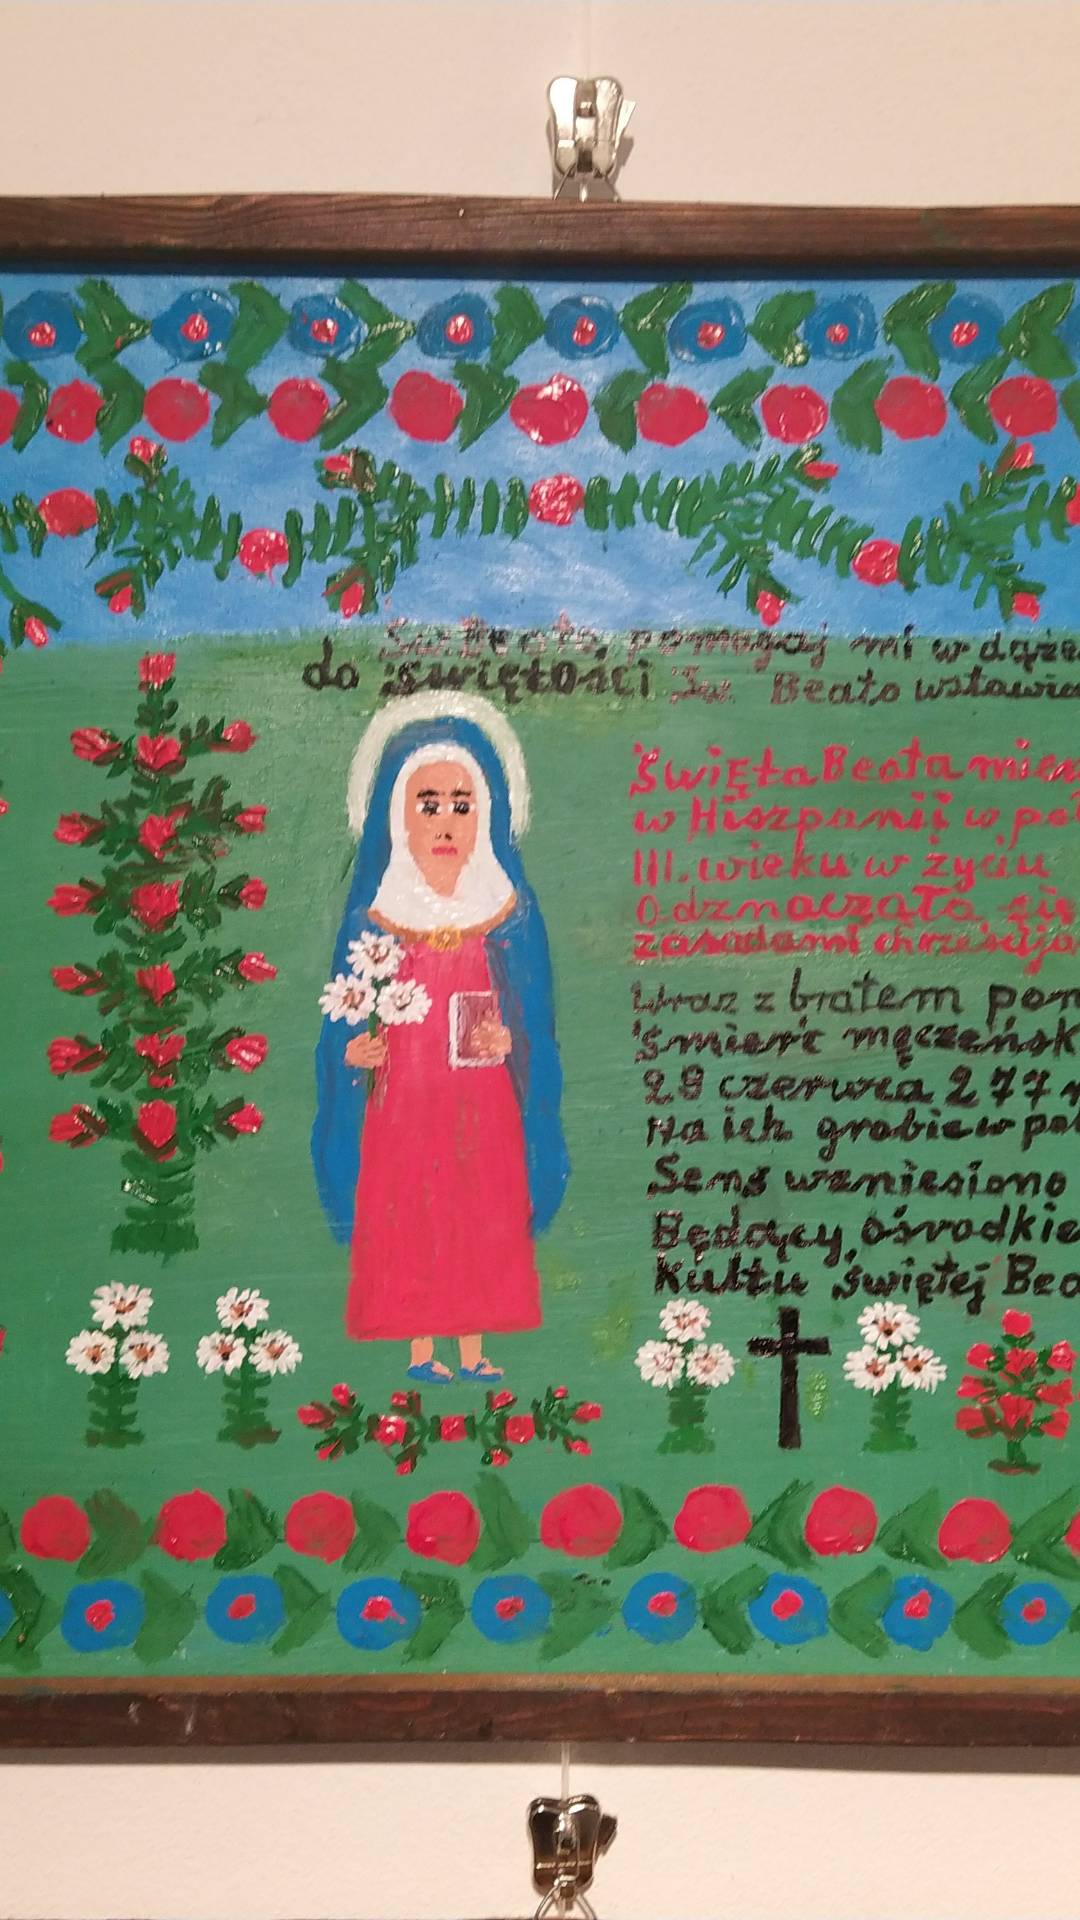 Św. Beato, pomagaj mi w dąże
do świętości Św. Beato wstawia
Święta Beata miesz
w Hiszpanii w poł
III. wieku w życiu
Odznaczała się
zasadami chrześcija
Wraz z bratem pon
śmierć męczeńsk
29 czerwca 277 r
Na ich grobie w pob
Sens wzniesiono
Będący, ośrodkie
Kultu świętej Bea